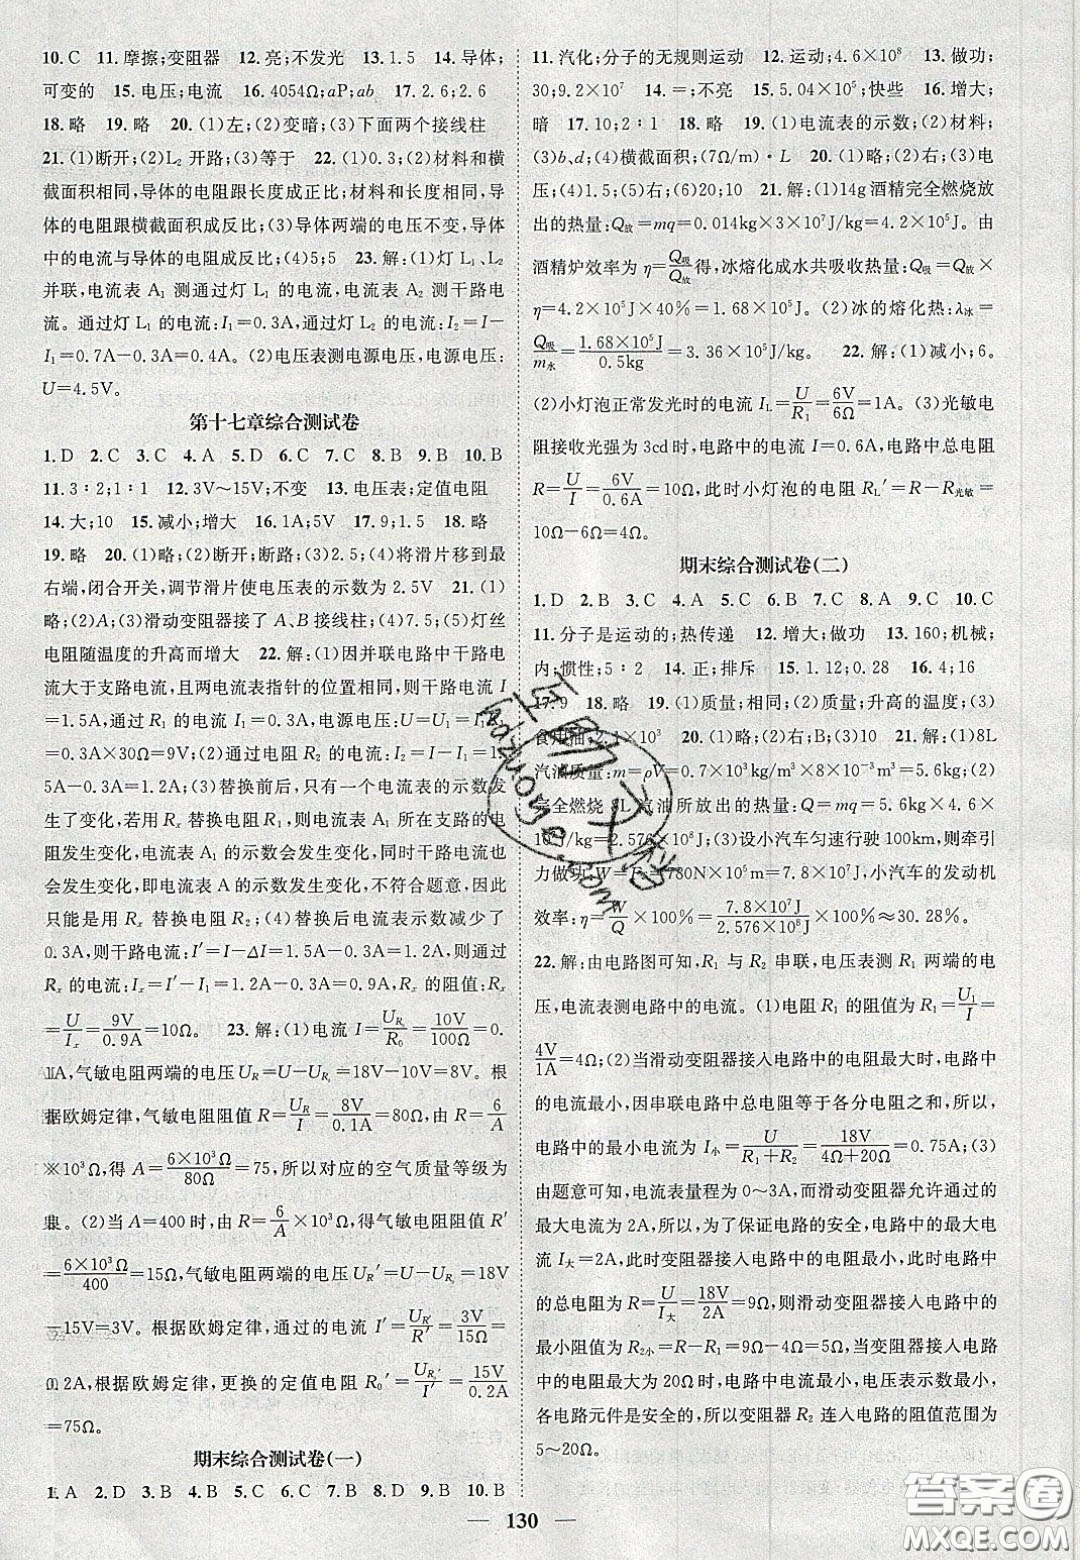 10. C 11. 摩擦;变阻器 12. 亮;不发光 13. 1.5 14. 导体;
可变的 15. 电压;电流 16. 4054Ω;aP;ab 17. 2.6;2.6
18. 略 19. 略 20. (1)左;(2)变暗;(3)下面两个接线柱
21. (1)断开;(2)L₂ 开路;(3)等于 22. (1)0.3;(2)材料和横
截面积相同,导体的电阻跟长度成正比;材料和长度相同,导体
的电阻跟横截面积成反比;(3)导体两端的电压不变,导体中
的电流与导体的电阻成反比;(4)5;5 23. 解:(1)灯 L₁、L₂
并联,电流表 A₁ 测通过灯 L₁ 的电流,电流表 A₂ 测干路电
流。通过灯 L₁ 的电流:I₁=0.3A,通过灯 L₂ 的电流:I₂=I-
I₁=0.7A-0.3A=0.4A。(2)电压表测电源电压,电源电压:
U=4.5V。
第十七章综合测试卷
1. D 2. C 3. C 4. A 5. D 6. C 7. C 8. B 9. B 10. B
11. 3∶2;1∶1 12. 3V~15V;不变 13. 电压表;定值电阻
14. 大;10 15. 减小;增大 16. 1A;5V 17. 9;1.5 18. 略
19. 略 20. (1)略;(2)断开;断路;(3)2.5;(4)将滑片移到最
右端,闭合开关,调节滑片使电压表的示数为2.5V 21. (1)
略;(2)A;(3)滑动变阻器接了A、B接线柱;(4)7.5;(5)灯丝
电阻随温度的升高而增大 22. 解:(1)因并联电路中干路电
流大于支路电流,且两电流表指针的位置相同,则干路电流 I
=1.5A,通过 R₁ 的电流 I₁=0.3A,电源电压:U=U₁=I₁R₁=
0.3A×30Ω=9V;(2)通过电阻 R₂ 的电流:I₂=I-I₁=1.5A
-0.3A=1.2A;(3)替换前后,只有一个电流表的示数
发生了变化,若用 Rx 替换电阻 R₁,则电流表 A₁ 所在支路的电
阻发生变化,电流表 A₁ 的示数会发生变化,同时干路电流也
会发生变化,即电流表 A 的示数发生变化,不符合题意,因此
只能是用 Rx 替换电阻 R₂;(4)替换后电流表示数减少了
0.3A,则干路电流:I′=I-ΔI=1.5A-0.3A=1.2A,通过
Rx 的电流:Ix=I′-I₁=1.2A-0.3A=0.9A,Rx 的阻值:Rx
=U/Ix=9V/0.9A=10Ω。 23. 解:(1)电流 I=U_R₀/R₀=10V/100Ω=0.
1A,气敏电阻两端的电压 U_R=U-U_R₀=18V-10V=8V。
根据欧姆定律,气敏电阻阻值 R=U_R/I=8V/0.1A=80Ω,由 R=6/A
×10³Ω,得 A=6×10³Ω/80Ω=75,所以对应的空气质量等级为
良。(2)当 A=400 时,由 R=6/A×10³Ω,得气敏电阻阻值 R′
=6×10³Ω/400=15Ω,气敏电阻两端的电压 U_R′=U-U_R₀=18V
-15V=3V。根据欧姆定律,通过的电流 I′=U_R′/R′=3V/15Ω=
0.2A,根据欧姆定律,更换的定值电阻 R₀′=U_R₀/I′=15V/0.2A
=75Ω。
期末综合测试卷(一)
1. A 2. D 3. B 4. B 5. D 6. C 7. D 8. B 9. D 10. B
11. 汽化;分子的无规则运动 12. 运动;4.6×10⁸ 13. 做功;
30;9.2×10⁷ 14. =;不亮 15. 5.04×10⁵;快些 16. 增大;
暗 17. 10;2∶1 18. 略 19. (1)电流表的示数;(2)材料;
(3)b、d;(4)横截面积;(7Ω/m)·L 20. (1)略;(2)右;(3)电
压;(4)1.5;(5)右;(6)20;10 21. 解:(1)14g酒精完全燃烧放
出的热量:Q放=mq=0.014kg×3×10⁷J/kg=4.2×10⁵J。由
酒精炉效率为 η=Q吸/Q放得,冰熔化成水共吸收热量:Q吸=Q放×
η=4.2×10⁵J×40%=1.68×10⁵J。(2)冰的熔化热:λ冰=
Q吸/m水=1.68×10⁵J/0.5kg=3.36×10⁵J/kg。 22. 解:(1)减小;6。
(2)小灯泡正常发光时的电流 I_L=U/R₁=6V/6Ω=1A。(3)光敏电
阻接收光强为3cd时,电路中的电流 I=0.6A,电路中总电阻
R=U/I=6V/0.6A=10Ω,此时小灯泡的电阻 R_L′=R-R光敏=
10Ω-6Ω=4Ω。
期末综合测试卷(二)
1. D 2. B 3. C 4. A 5. D 6. B 7. C 8. A 9. C 10. C
11. 分子是运动的;热传递 12. 增大;做功 13. 160;机械;
内;惯性;5∶2 14. 正;排斥 15. 1.12;0.28 16. 4;16
17. 9 18. 略 19. (1)质量;相同;(2)质量;升高的温度;(3)
食用油;2.1×10³ 20. (1)略;(2)右;B;(3)10 21. 解:(1)8L
汽油质量:m=ρV=0.7×10³kg/m³×8×10⁻³m³=5.6kg;(2)
完全燃烧 8L 汽油所放出的热量:Q=mq=5.6kg×4.6
×10⁷J/kg=2.576×10⁸J;(3)设小汽车匀速行驶100km,则牵引
力做功:W=Fs=780N×10⁵m=7.8×10⁷J,小汽车的发动机
效率:η=W/Q×100%=7.8×10⁷J/2.576×10⁸J×100%≈30.28%。
22. 解:由电路图可知,R₁ 与 R₂ 串联,电压表测 R₁ 两端的电
压,电流表测电路中的电流。(1)电阻 R₁ 的阻值为 R₁=U₁/I=
4V/1A=4Ω;(2)当滑动变阻器接入电路中的电阻最大时,电路中
的电流最小,因串联电路中总电阻等于各分电阻之和,所以,
电路中的最小电流为 I小=U/(R₁+R₂)=18V/(4Ω+20Ω)=0.75A;(3)
由题意可知,电流表量程为0~3A,而滑动变阻器允许通过的
最大电流为2A,所以,为了保证电路的安全,电路中的最大电
流 I大=2A,此时变阻器接入电路中的电阻最小,此时电路中
的总电阻为 R=U/I大=18V/2A=9Ω,则滑动变阻器接入电路中的
最小阻值为 R₂小=R-R₁=9Ω-4Ω=5Ω,当变阻器接入电路
中的电阻为最大20Ω时,两电表均没有超过各自的量程,即
各电路元件是安全的,所以变阻器 R₂ 连入电路的阻值范围为
5~20Ω。
130
答案圈
MXQE.COM